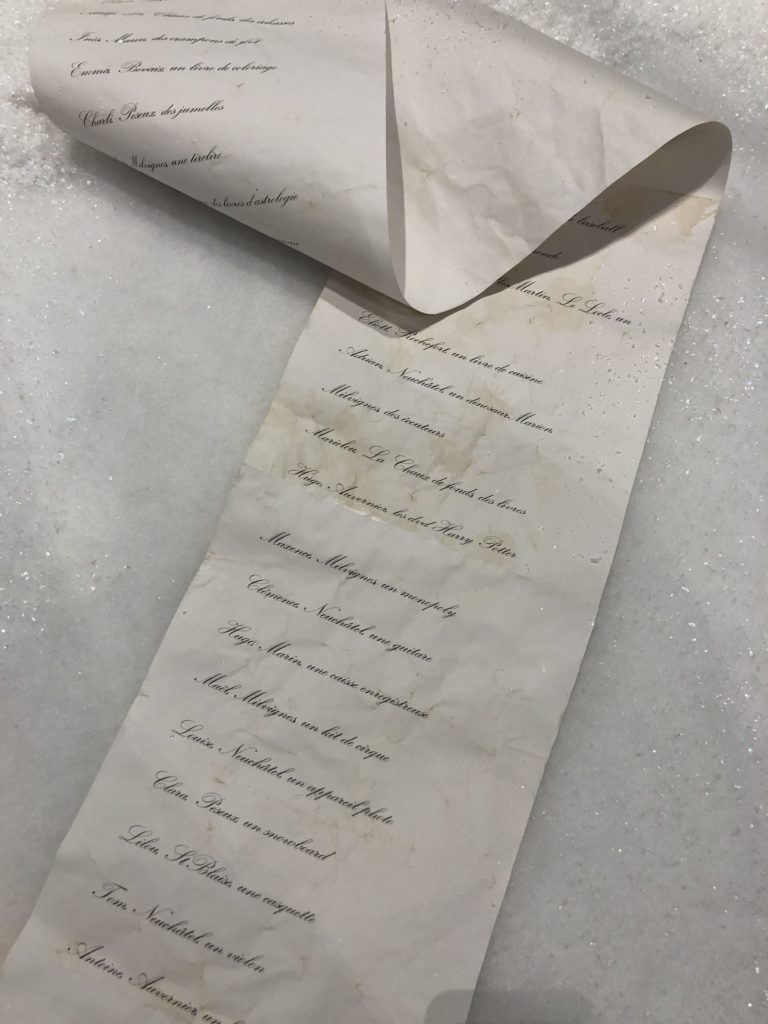 des colosses
Inès, Marin, des crampons de foot
Emma, Bevaix, un livre de coloriage
Charli, Peseux, des jumelles
Milvignes, une tirelire
des livres d'astrologie
baseball
monde
Martin, Le Locle, un
Eliott, Rochefort, un livre de cuisine
Adrien, Neuchâtel, un dinosaur, Marion,
Milvignes des écouteurs
Marielou, La Chaux de fonds, des livres
Hugo, Auvernier, les dvd Harry Potter
Maxence, Milvignes, un monopoly
Clémence, Neuchâtel, une guitare
Hugo, Marin, une caisse enregistreuse
Maël, Milvignes, un kit de cirque
Louise, Neuchâtel, un appareil photo
Clara, Peseux, un snowboard
Lilou, St Blaise, une casquette
Tom, Neuchâtel, un violon
Antoine, Auvernier, un